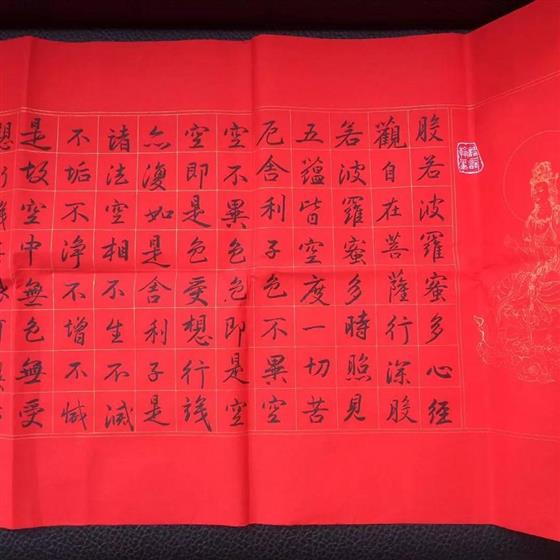 般若波羅蜜多心經
觀自在菩薩行深般
若波羅蜜多時照見
五蘊皆空度一切苦
厄舍利子色不異空
空不異色色即是空
空即是色受想行識
亦復如是舍利子是
諸法空相不生不滅
不垢不淨不增不減
是故空中無色無受
想行識